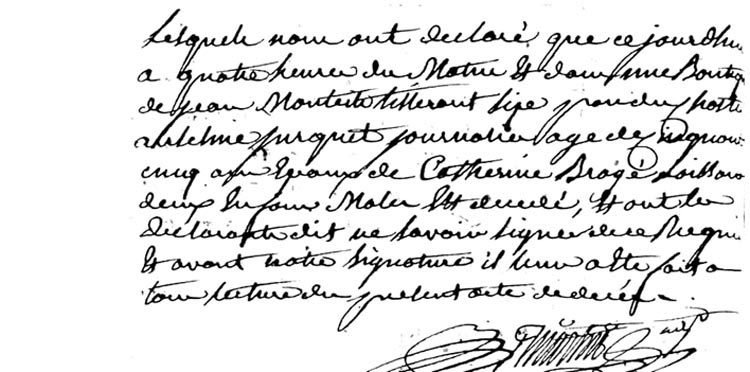 Lesquels nous ont declaré que ce jourdhui
a quatre heures du Matin Et dans une Boutiq
de jean
anselme jurquet journalier age de cinquan
cinq ans Epoux de Catherine Bragé Laissan
deux Enfans Males Est decedé, Et ont les
declarants dit ne Savoir Signer de ce Requi
Et avant notre Signature il leur a Eté fait a
tous lecture du present acte de decés